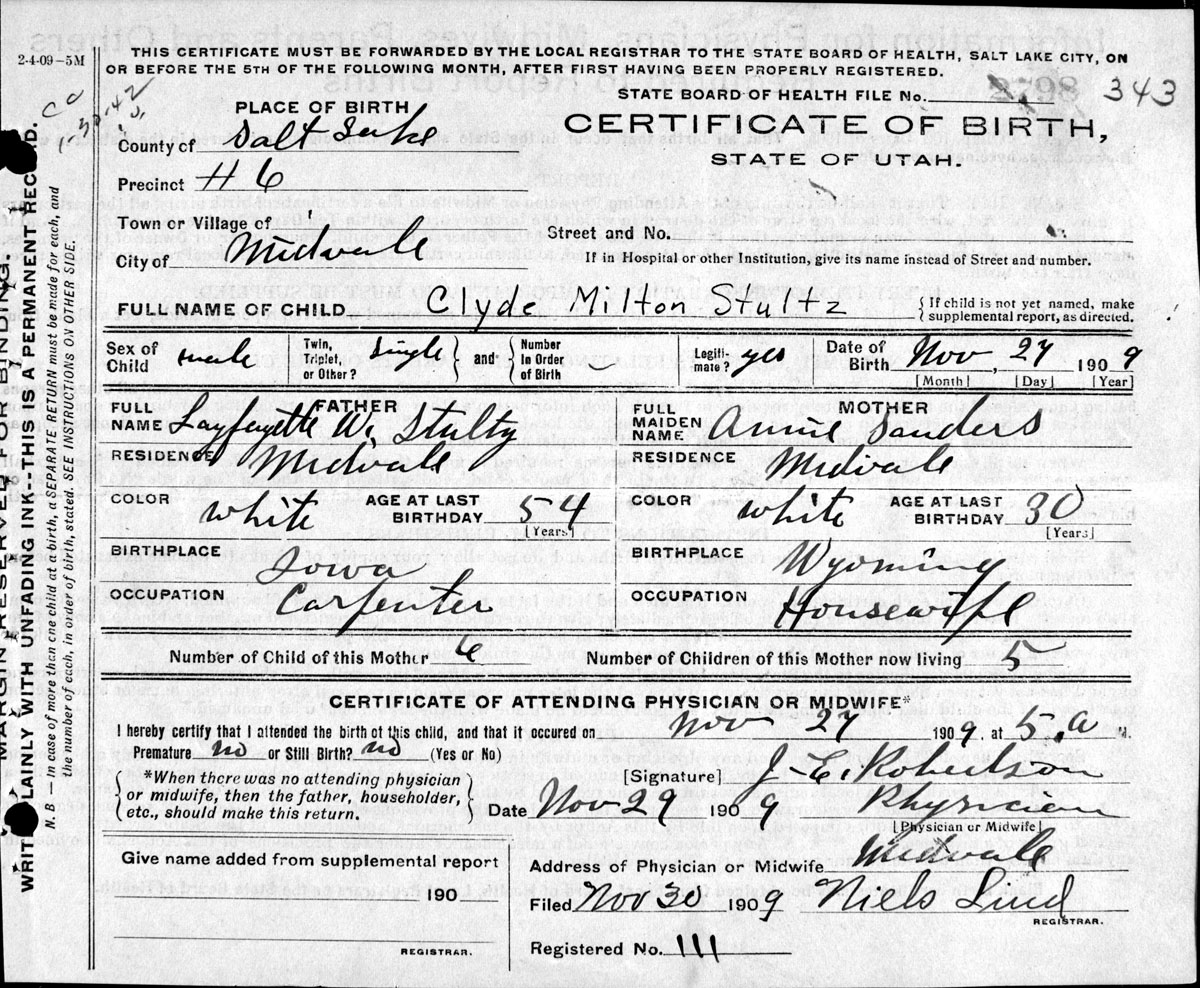 2-4-09-5M
THIS CERTIFICATE MUST BE FORWARDED BY THE LOCAL REGISTRAR TO THE STATE BOARD OF HEALTH, SALT LAKE CITY, ON
OR BEFORE THE 5TH OF THE FOLLOWING MONTH, AFTER FIRST HAVING BEEN PROPERLY REGISTERED.
STATE BOARD OF HEALTH FILE No. 343
PLACE OF BIRTH
CERTIFICATE OF BIRTH,
STATE OF UTAH.
County of Salt Lake
Precinct # 6
Town or Village of
City of Midvale
Street and No.
If in Hospital or other Institution, give its name instead of Street and number.
FULL NAME OF CHILD Clyde Milton Stultz { If child is not yet named, make
supplemental report, as directed.
Sex of Child male Twin, Triplet, or Other? Single } and { Number In Order of Birth – Legiti- mate? yes Date of Birth Nov, 27 1909
[Month] [Day] [Year]
FATHER
FULL NAME Layfayette W. Stultz
RESIDENCE Midvale
COLOR white AGE AT LAST BIRTHDAY 54
[Years]
BIRTHPLACE Iowa
OCCUPATION Carpenter
MOTHER
FULL MAIDEN NAME Annie Sanders
RESIDENCE Midvale
COLOR white AGE AT LAST BIRTHDAY 30
[Years]
BIRTHPLACE Wyoming
OCCUPATION Housewife
Number of Child of this Mother 6 Number of Children of this Mother now living 5
CERTIFICATE OF ATTENDING PHYSICIAN OR MIDWIFE*
I hereby certify that I attended the birth of this child, and that it occured on Nov 27 1909, at 5, a M.
Premature no or Still Birth? no (Yes or No)
{ *When there was no attending physician
or midwife, then the father, householder,
etc., should make this return. }
[Signature] J. E. Robertson
Date Nov 29 1909 Physician
[Physician or Midwife]
Give name added from supplemental report
190
REGISTRAR.
Address of Physician or Midwife Midvale
Filed Nov 30 1909 Niels Lind
REGISTRAR.
Registered No. 111
MARGIN RESERVED FOR BINDING.
WRITE PLAINLY WITH UNFADING INK--THIS IS A PERMANENT RECORD.
N. B.—In case of more then one child at a birth, a SEPARATE RETURN must be made for each, and
the number of each, in order of birth, stated. SEE INSTRUCTIONS ON OTHER SIDE.